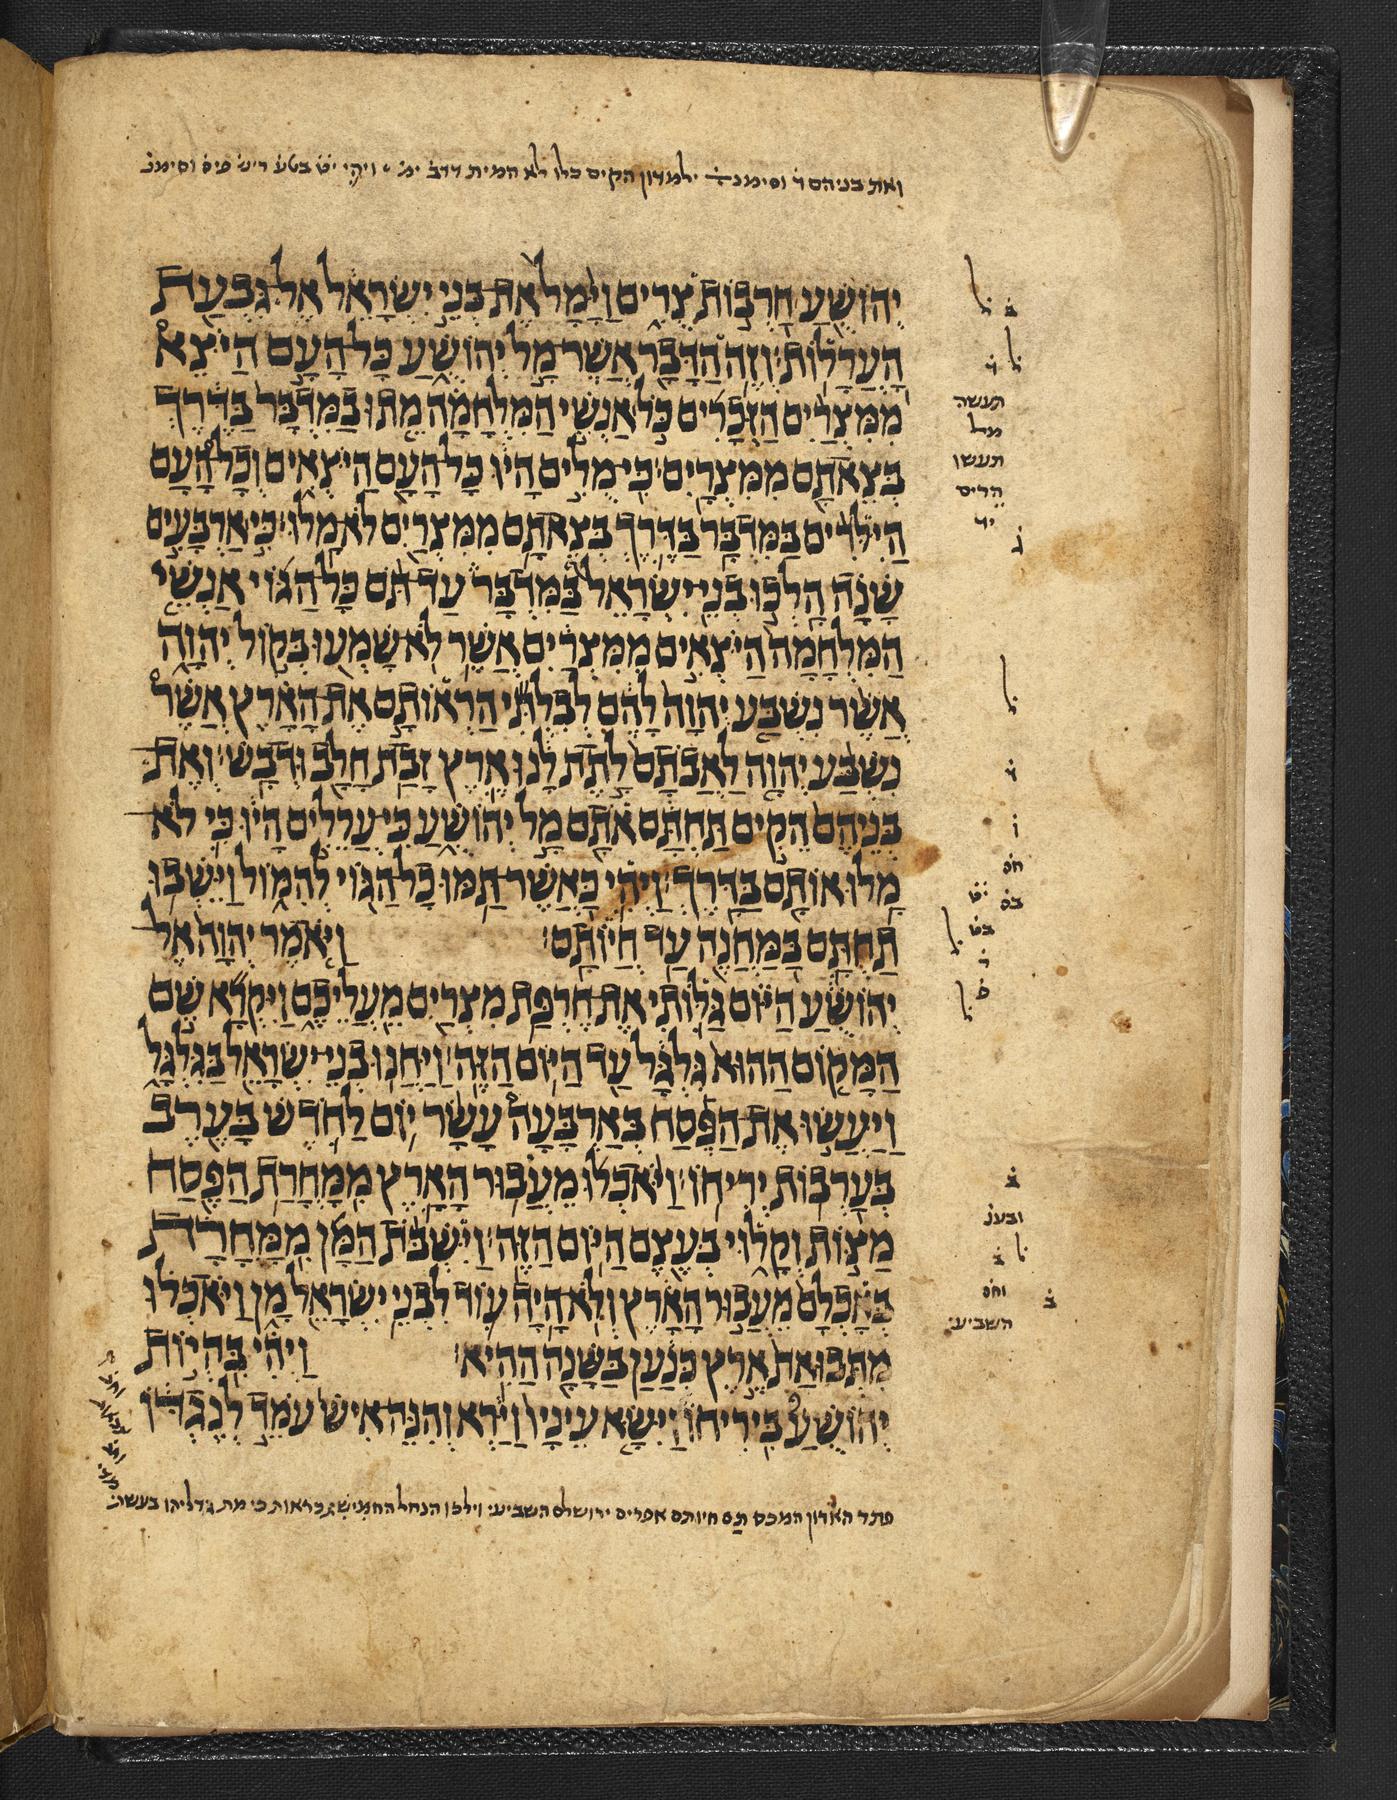 ואת בניהם ד וסימנ ילמדון הקים כלו לא המית דדב ימ ויהי
יְהוֹשֻׁעַ חַרְבוֹת צֻרִים וַיָּמָל אֶת בְּנֵי יִשְׂרָאֵל אֶל גִּבְעַת
הָעֲרָלוֹת׃ וְזֶה הַדָּבָר אֲשֶׁר מָל יְהוֹשֻׁעַ כָּל הָעָם הַיֹּצֵא
מִמִּצְרַיִם הַזְּכָרִים כֹּל אַנְשֵׁי הַמִּלְחָמָה מֵתוּ בַמִּדְבָּר בַּדֶּרֶךְ
בְּצֵאתָם מִמִּצְרָיִם׃ כִּי מֻלִים הָיוּ כָּל הָעָם הַיֹּצְאִים וְכָל הָעָם
הַיִּלֹּדִים בַּמִּדְבָּר בַּדֶּרֶךְ בְּצֵאתָם מִמִּצְרַיִם לֹא מָלוּ׃ כִּי אַרְבָּעִים
שָׁנָה הָלְכוּ בְנֵי יִשְׂרָאֵל בַּמִּדְבָּר עַד תֹּם כָּל הַגּוֹי אַנְשֵׁי
הַמִּלְחָמָה הַיֹּצְאִים מִמִּצְרַיִם אֲשֶׁר לֹא שָׁמְעוּ בְּקוֹל יְהוָה
אֲשֶׁר נִשְׁבַּע יְהוָה לָהֶם לְבִלְתִּי הַרְאוֹתָם אֶת הָאָרֶץ אֲשֶׁר
נִשְׁבַּע יְהוָה לַאֲבֹתָם לָתֶת לָנוּ אֶרֶץ זָבַת חָלָב וּדְבָשׁ׃ וְאֶת
בְּנֵיהֶם הֵקִים תַּחְתָּם אֹתָם מָל יְהוֹשֻׁעַ כִּי עֲרֵלִים הָיוּ כִּי לֹא
מָלוּ אוֹתָם בַּדָּרֶךְ׃ וַיְהִי כַּאֲשֶׁר תַּמּוּ כָל הַגּוֹי לְהִמּוֹל וַיֵּשְׁבוּ
תַחְתָּם בַּמַּחֲנֶה עַד חֲיוֹתָם׃ וַיֹּאמֶר יְהוָה אֶל
יְהוֹשֻׁעַ הַיּוֹם גַּלּוֹתִי אֶת חֶרְפַּת מִצְרַיִם מֵעֲלֵיכֶם וַיִּקְרָא שֵׁם
הַמָּקוֹם הַהוּא גִּלְגָּל עַד הַיּוֹם הַזֶּה׃ וַיַּחֲנוּ בְנֵי יִשְׂרָאֵל בַּגִּלְגָּל
וַיַּעֲשׂוּ אֶת הַפֶּסַח בְּאַרְבָּעָה עָשָׂר יוֹם לַחֹדֶשׁ בָּעֶרֶב
בְּעַרְבוֹת יְרִיחוֹ׃ וַיֹּאכְלוּ מֵעֲבוּר הָאָרֶץ מִמָּחֳרַת הַפֶּסַח
מַצּוֹת וְקָלוּי בְּעֶצֶם הַיּוֹם הַזֶּה׃ וַיִּשְׁבֹּת הַמָּן מִמָּחֳרָת
בְּאָכְלָם מֵעֲבוּר הָאָרֶץ וְלֹא הָיָה עוֹד לִבְנֵי יִשְׂרָאֵל מָן וַיֹּאכְלוּ
מִתְּבוּאַת אֶרֶץ כְּנַעַן בַּשָּׁנָה הַהִיא׃ וַיְהִי בִּהְיוֹת
יְהוֹשֻׁעַ בִּירִיחוֹ וַיִּשָּׂא עֵינָיו וַיַּרְא וְהִנֵּה אִישׁ עֹמֵד לְנֶגְדּוֹ
תעשה
מל
תעשו
הרים
יד
חס
בט
ובענ
וחס
השביע
האדון המכס תם חיותם אפרים ירושלם השביע וילכו הנחל החמיש כראות כי מת גדליהו בעשת